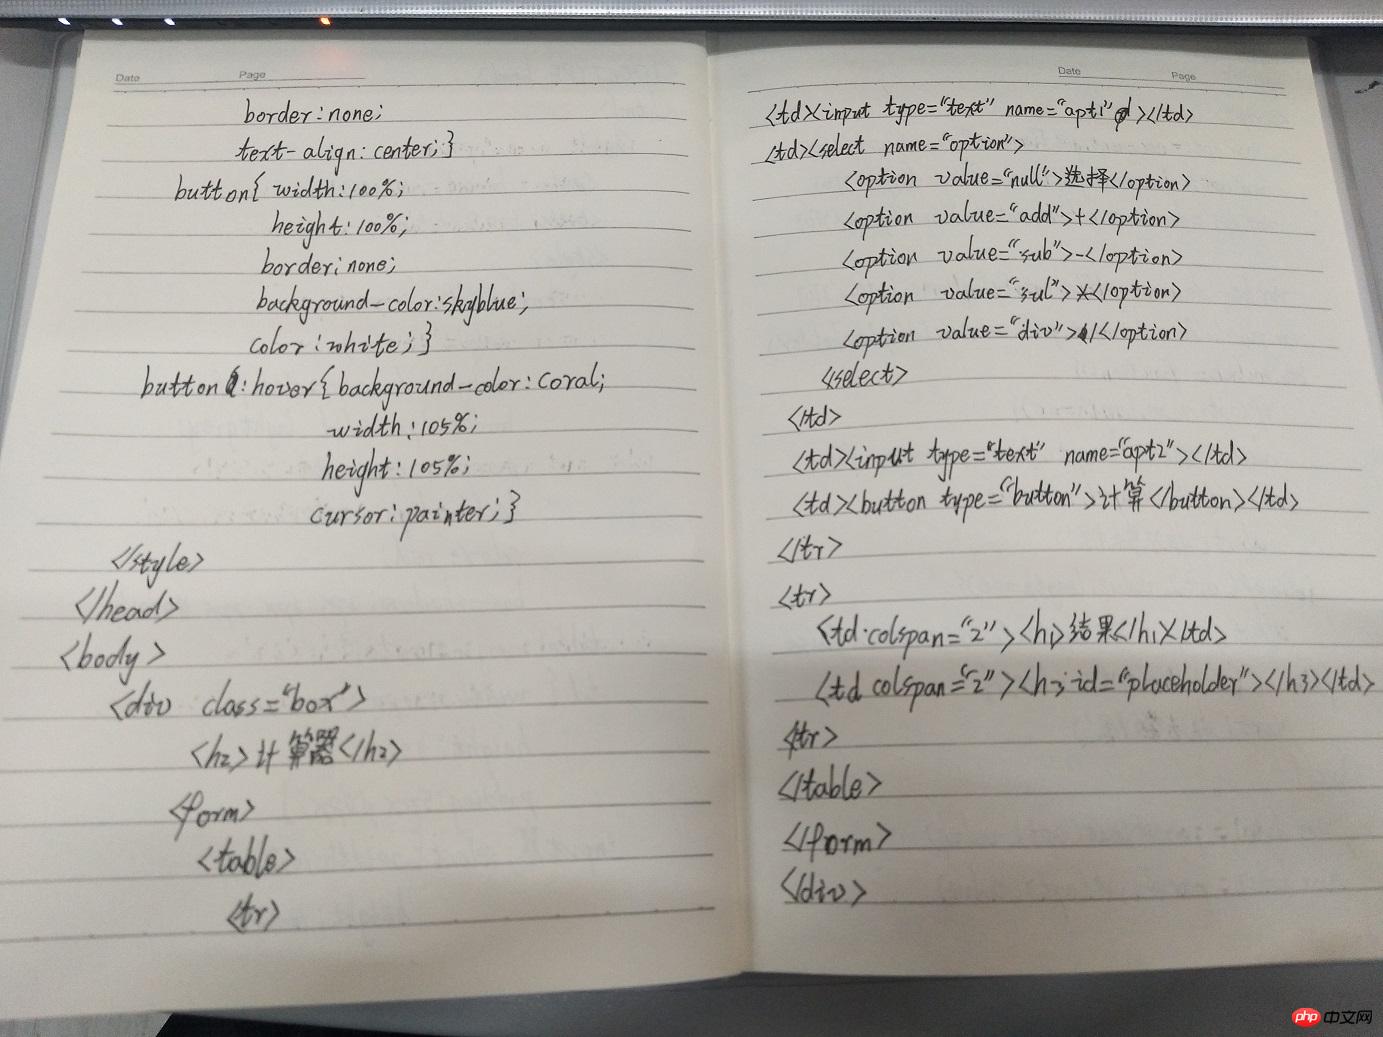 Date Page
border:none;
text-align:center;}
button{ width:100%;
height:100%;
border:none;
background-color:skyblue;
color:white;}
button:hover{background-color:coral;
width:105%;
height:105%;
cursor:painter;}
</style>
</head>
<body>
<div class="box">
<h2>计算器</h2>
<form>
<table>
<tr>
Date Page
<td><input type="text" name="apt1"></td>
<td><select name="option">
<option value="null">选择</option>
<option value="add">+</option>
<option value="sub">-</option>
<option value="sul">×</option>
<option value="div">/</option>
</select>
</td>
<td><input type="text" name="apt2"></td>
<td><button type="button">计算</button></td>
</tr>
<tr>
<td colspan="2"><h1>结果</h1></td>
<td colspan="2"><h3 id="placeholder"></h3></td>
<tr>
</table>
</form>
</div>
php 中文网